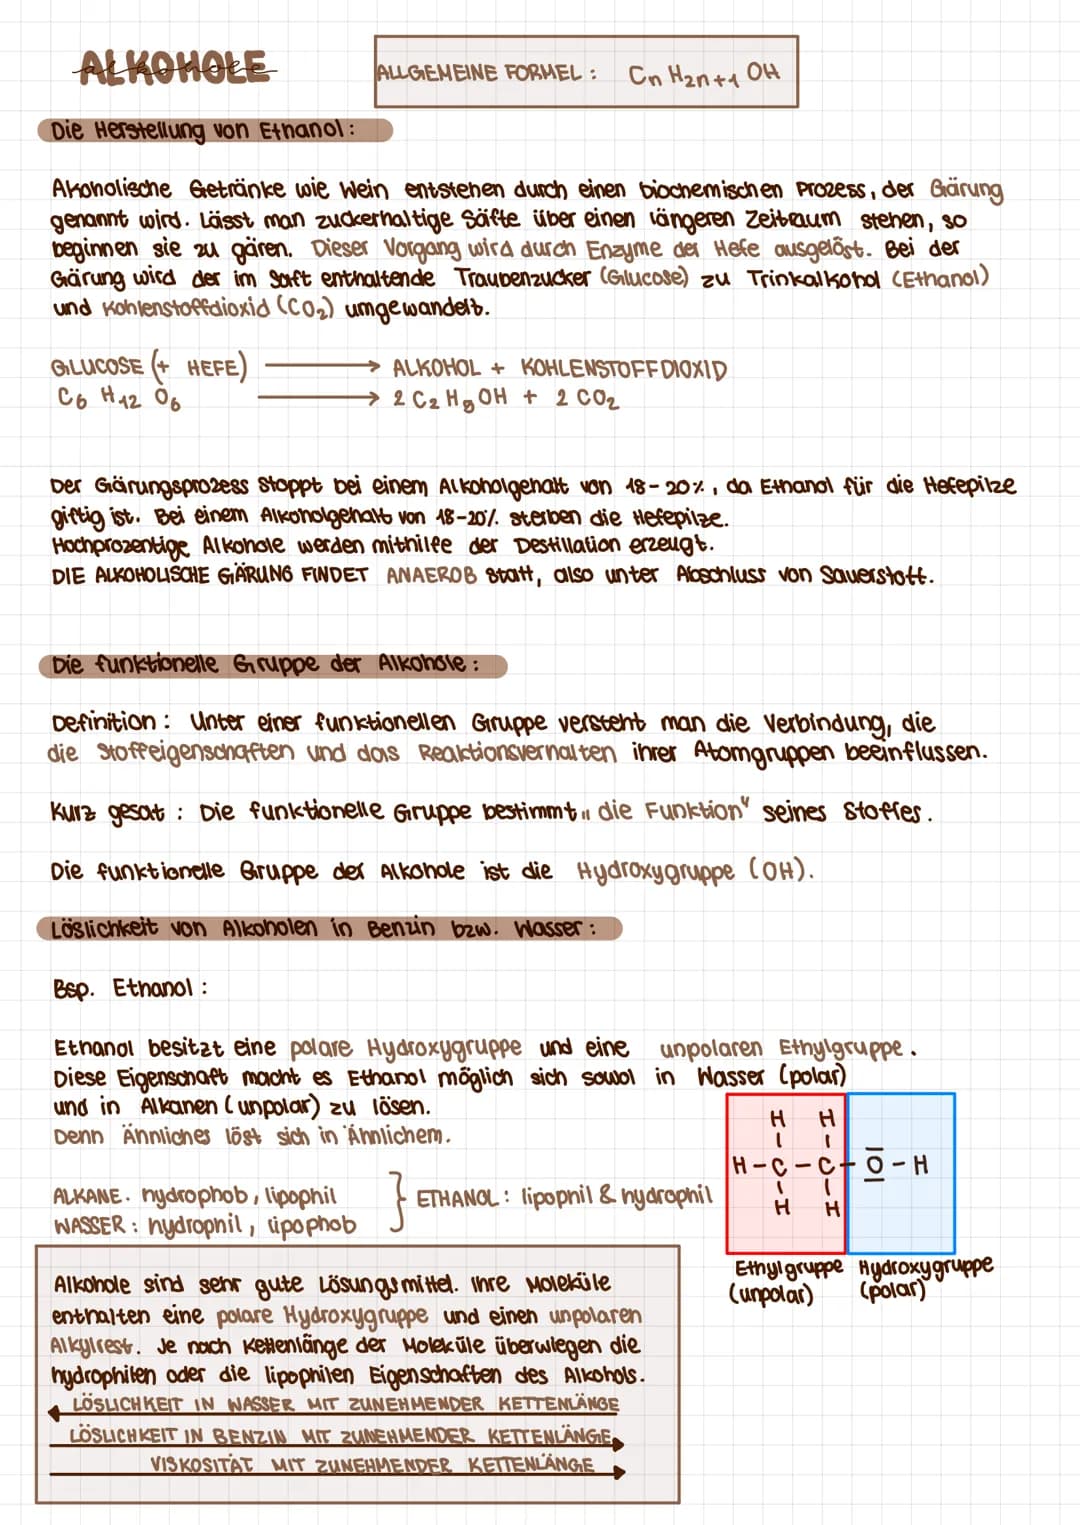 ALKOHOLE
alkohole
ALLGEMEINE FORMEL : CnH2n+1 OH
Die Herstellung von Ethanol :
Akoholische Getränke wie Wein entstehen durch einen biochemischen Prozess, der Gärung
genannt wird. Lässt man zuckerhaltige Säfte über einen längeren Zeitraum stehen, so
beginnen sie zu gären. Dieser Vorgang wird durch Enzyme der Hefe ausgelöst. Bei der
Gärung wird der im Saft enthaltende Traubenzucker (Glucose) zu Trinkalkohol (Ethanol)
und Kohlenstoffdioxid (CO2) umgewandelt.
GLUCOSE (+ HEFE) → ALKOHOL + KOHLENSTOFFDIOXID
C6 H12 O6 → 2 C2 H5 OH + 2 CO2
Der Gärungsprozess stoppt bei einem Alkoholgehalt von 18-20%, da Ethanol für die Hefepilze
giftig ist. Bei einem Alkoholgehalt von 18-20% sterben die Hefepilze.
Hochprozentige Alkohole werden mithilfe der Destillation erzeugt.
DIE ALKOHOLISCHE GÄRUNG FINDET ANAEROB statt, also unter Abschluss von Sauerstoff.
Die funktionelle Gruppe der Alkohole :
Definition : Unter einer funktionellen Gruppe versteht man die Verbindung, die
die Stoffeigenschaften und das Reaktionsverhalten ihrer Atomgruppen beeinflussen.
Kurz gesat : Die funktionelle Gruppe bestimmt „die Funktion“ seines Stoffes.
Die funktionelle Gruppe der Alkohole ist die Hydroxygruppe (OH).
Löslichkeit von Alkoholen in Benzin bzw. Wasser :
Bsp. Ethanol :
Ethanol besitzt eine polare Hydroxygruppe und eine unpolaren Ethylgruppe.
Diese Eigenschaft macht es Ethanol möglich sich sowol in Wasser (polar)
und in Alkanen (unpolar) zu lösen.
Denn Ähnliches löst sich in Ähnlichem.
ALKANE. hydrophob, lipophil
WASSER : hydrophil, lipophob
} ETHANOL : lipophil & hydrophil
H H
H-C-C-O-H
H H
Ethylgruppe Hydroxygruppe
(unpolar) (polar)
Alkohole sind sehr gute Lösungsmittel. Ihre Moleküle
enthalten eine polare Hydroxygruppe und einen unpolaren
Alkylrest. Je nach Kettenlänge der Moleküle überwiegen die
hydrophilen oder die lipophilen Eigenschaften des Alkohols.
LÖSLICHKEIT IN WASSER MIT ZUNEHMENDER KETTENLÄNGE
LÖSLICHKEIT IN BENZIN MIT ZUNEHMENDER KETTENLÄNGE
VISKOSITÄT MIT ZUNEHMENDER KETTENLÄNGE